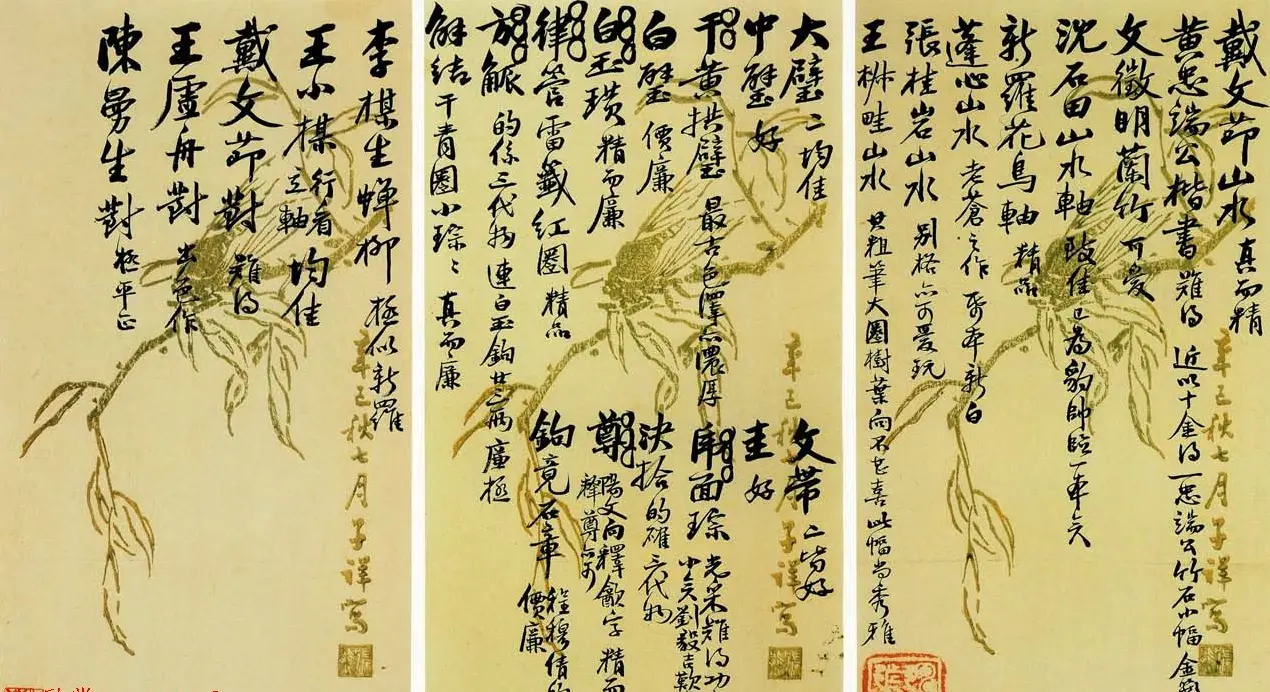 戴文節山水 真而精
黃忠端公楷書 難得 近以十金得一忠端公竹石小幅 金箋
文徵明蘭竹 可愛
沈石田山水軸 佳 已為豹帥臨一本矣
新羅花鳥軸 精品
蓬心山水 老蒼之作 本新白
張桂岩山水 別格亦可愛玩
王椒畦山水 其粗筆大圈樹葉向不甚喜 此幅尚秀雅
辛巳秋七月子詳寫
大璧 二均佳
中璧 好
干黃拱璧 最古色澤亦濃厚
白璧 價廉
白玉璜 精而廉
律管雷籤紅圈 精品
觚 的係三代物 連白玉鉤廿三兩 廉極
觧結 干青圈 小琮〻 真而廉
文帶 二皆好
圭 好
虎面琮 光采難得功
少矣劉毅吉款
決拾 的確三代物
尊 陽文向釋字精而
釋尊亦可
鉤竟石章 程穆倩的
價廉
辛巳秋七月子詳寫
李楳生蟬柳 極似新羅
王小楳 行看 立軸 均佳
戴文節對 難得
王虛舟對 出色作
陳曼生對 極平正
辛巳秋七月子詳寫